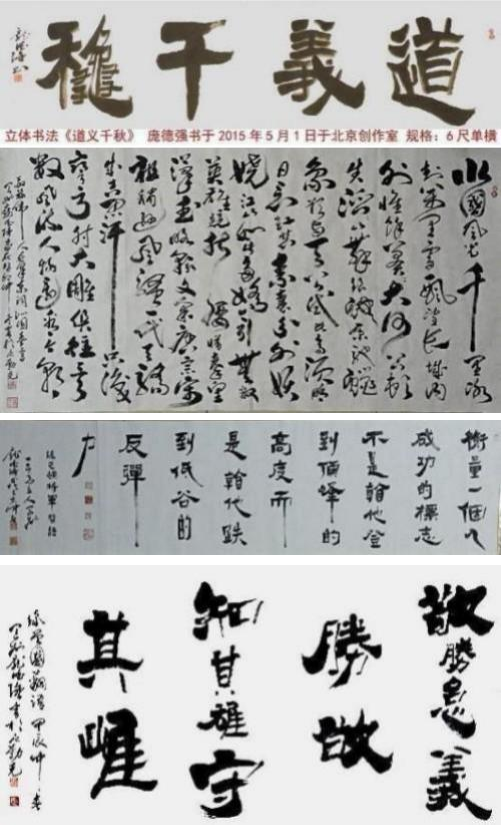 道義千龝
立体书法《道义千秋》 庞德强书于2015年5月1日于北京创作室 规格：6尺单横
北國風光千里冰
封萬里雪飄望長城内
外惟餘莽莽大河上下頓
失滔滔山舞銀蛇原馳蠟
象欲與天公試比高須晴
日看紅裝素裹分外妖
嬈江山如此多嬌引無數
英雄競折腰惜秦皇
漢武略輸文采唐宗宋
祖稍遜風騷一代天驕
成吉思汗只識
彎弓射大雕俱往矣
數風流人物還看今朝
衡量一個人
成功的標志
不是看他登
到頂峰的
高度而
是看他跌
到低谷的
反彈
力
敬勝怠義
勝欲
知其雄守
其雌